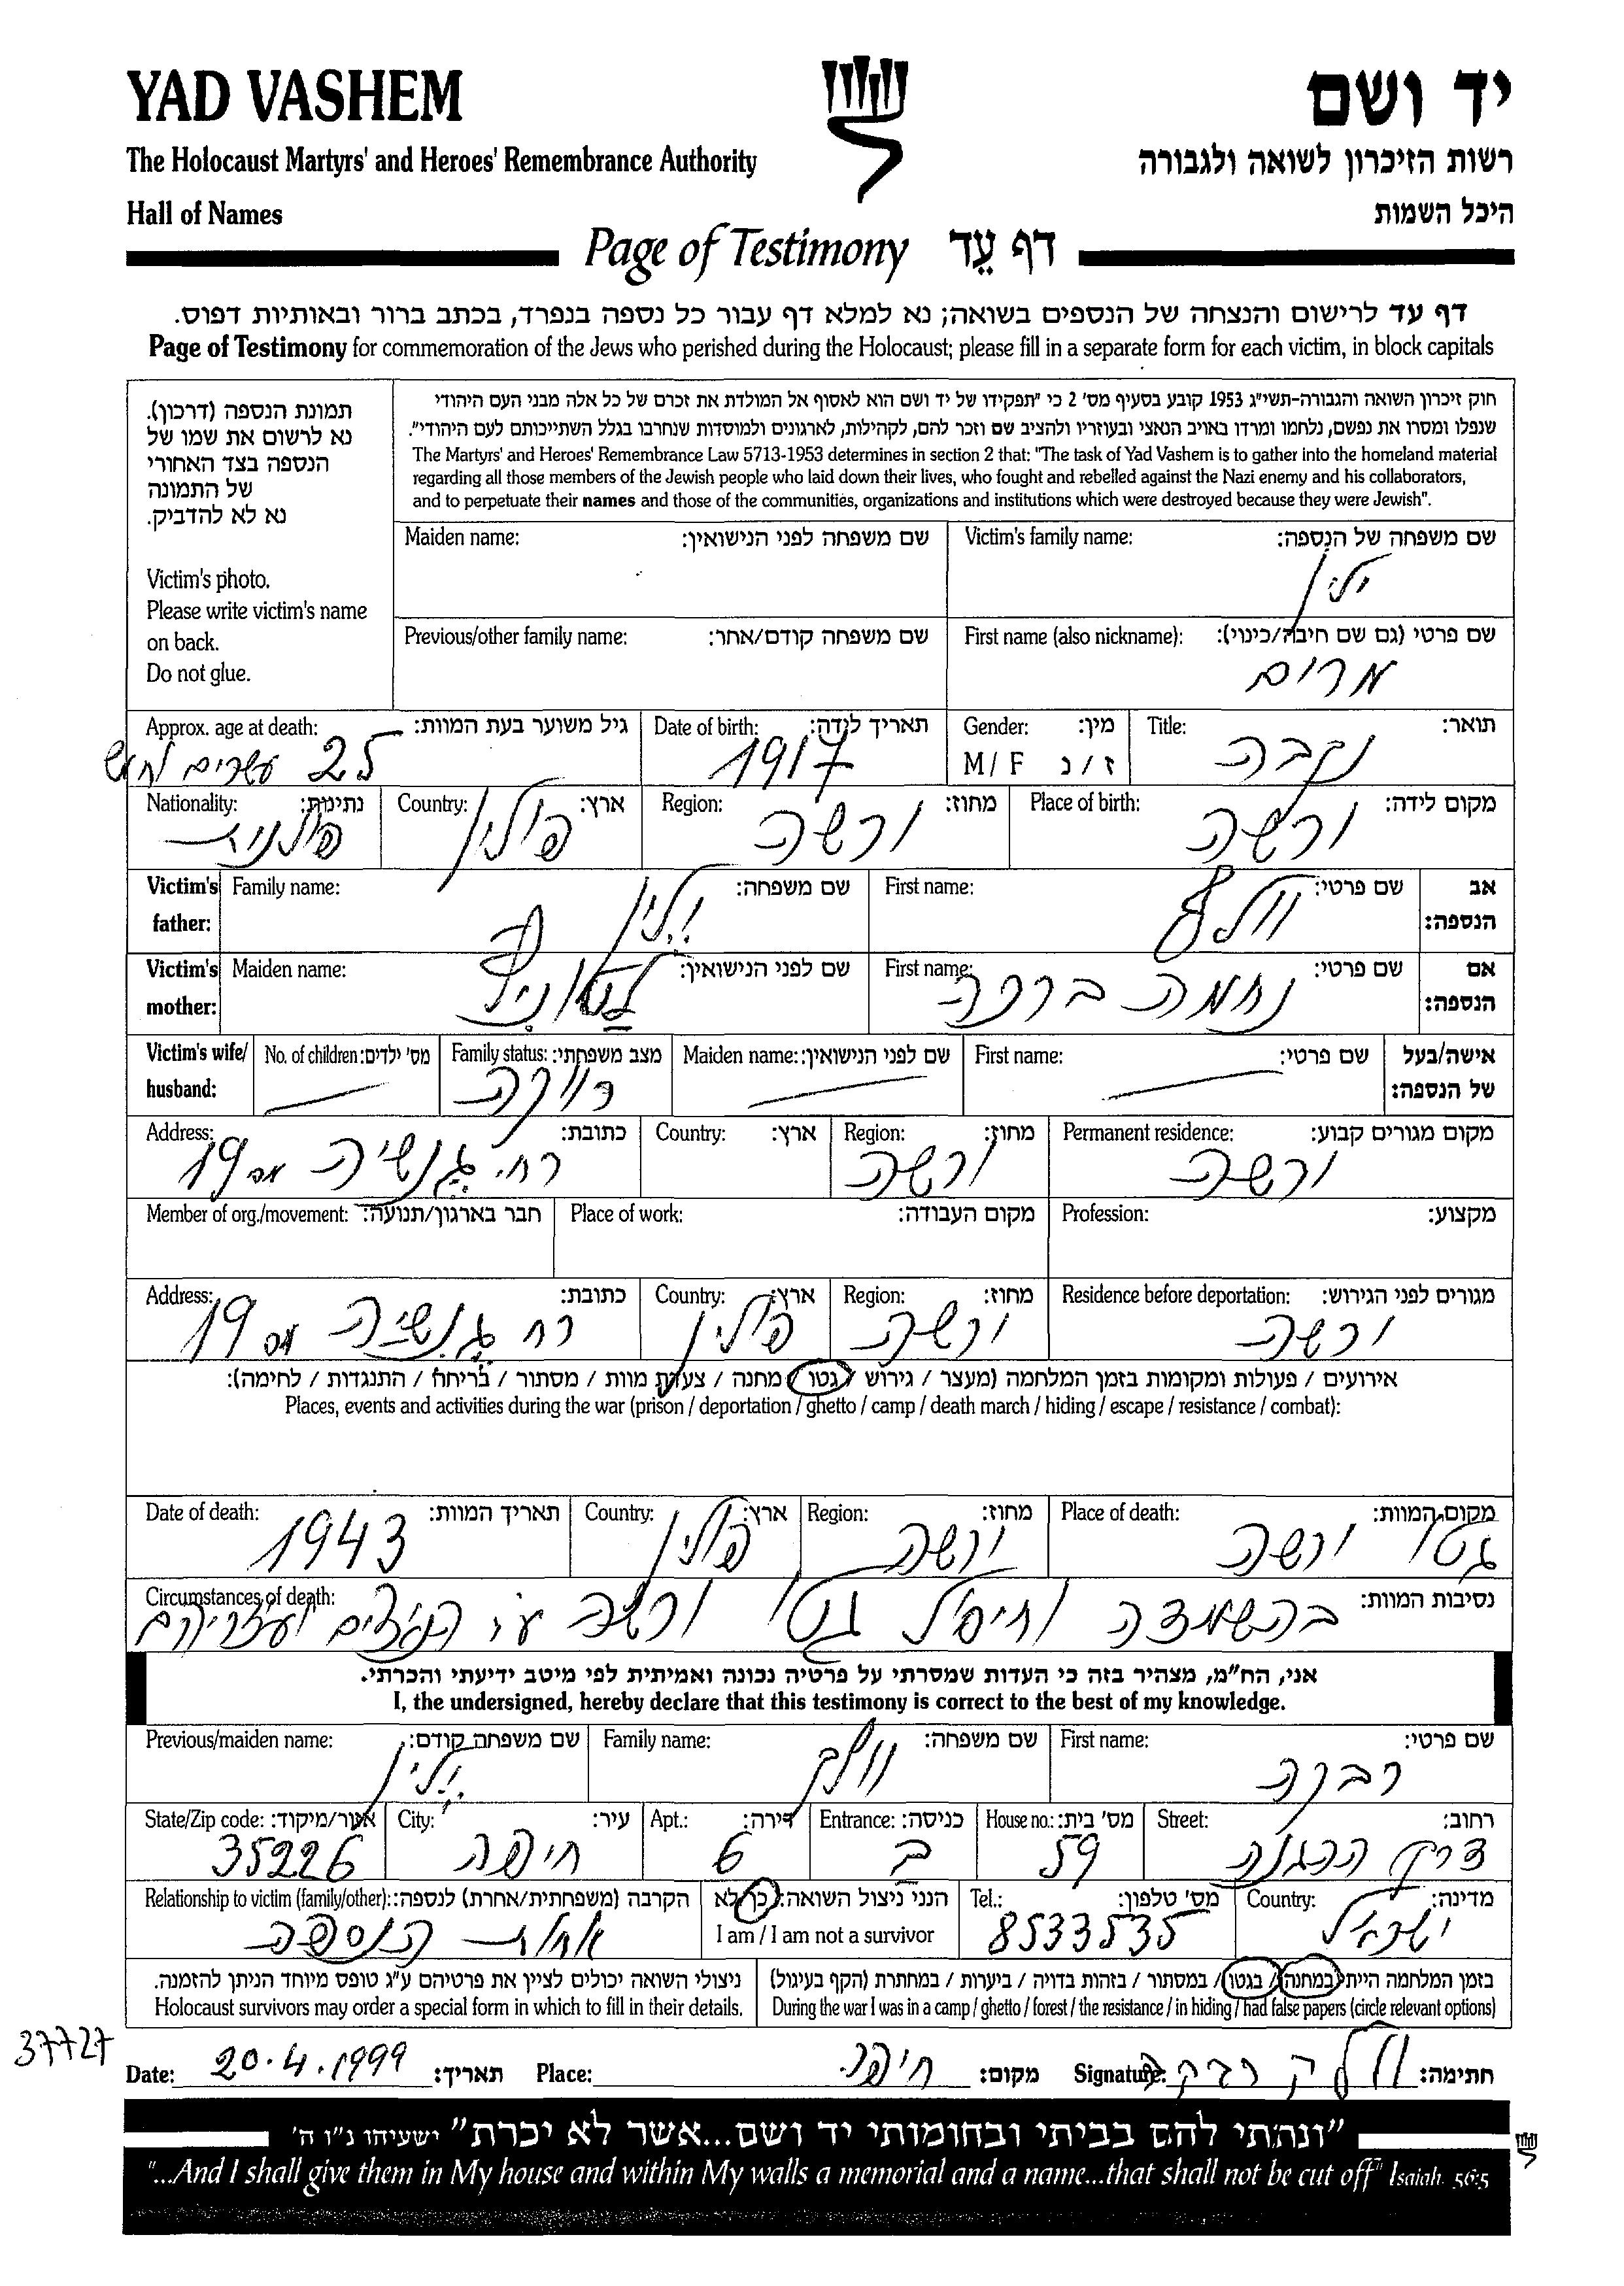 YAD VASHEM
יד ושם
The Holocaust Martyrs' and Heroes' Remembrance Authority
רשות הזיכרון לשואה ולגבורה
Hall of Names
היכל השמות
Page of Testimony דף עֵד
דף עד לרישום והנצחה של הנספים בשואה; נא למלא דף עבור כל נספה בנפרד, בכתב ברור ובאותיות דפוס.
Page of Testimony for commemoration of the Jews who perished during the Holocaust; please fill in a separate form for each victim, in block capitals
תמונת הנספה (דרכון).
נא לרשום את שמו של
הנספה בצד האחורי
של התמונה
נא לא להדביק.
Victim's photo.
Please write victim's name
on back.
Do not glue.
חוק זיכרון השואה והגבורה-תשי"ג 1953 קובע בסעיף מס' 2 כי "תפקידו של יד ושם הוא לאסוף אל המולדת את זכרם של כל אלה מבני העם היהודי
שנפלו ומסרו את נפשם, נלחמו ומרדו באויב הנאצי ובעוזריו ולהציב שם וזכר להם, לקהילות, לארגונים ולמוסדות שנחרבו בגלל השתייכותם לעם היהודי".
The Martyrs' and Heroes' Remembrance Law 5713-1953 determines in section 2 that: "The task of Yad Vashem is to gather into the homeland material
regarding all those members of the Jewish people who laid down their lives, who fought and rebelled against the Nazi enemy and his collaborators,
and to perpetuate their names and those of the communities, organizations and institutions which were destroyed because they were Jewish".
Victim's family name: שם משפחה של הנספה:
ילין
Maiden name: שם משפחה לפני הנישואין:
First name (also nickname): שם פרטי (גם שם חיבה/כינוי):
מרים
Previous/other family name: שם משפחה קודם/אחר:
Title: תואר:
נקבה
Gender: מין:
M / F ז / נ
Date of birth: תאריך לידה:
1917
Approx. age at death: גיל משוער בעת המוות:
25 עשרים וחמש
Place of birth: מקום לידה:
ורשה
Region: מחוז:
ורשה
Country: ארץ:
פולין
Nationality: נתינות:
פולנית
Victim's father: אב הנספה:
First name: שם פרטי:
וולף
Family name: שם משפחה:
ילין
Victim's mother: אם הנספה:
First name: שם פרטי:
נחמה ברכה
Maiden name: שם לפני הנישואין:
Victim's wife/ husband: אישה/בעל של הנספה:
First name: שם פרטי:
Maiden name: שם לפני הנישואין:
Family status: מצב משפחתי:
רווקה
No. of children: מס' ילדים:
Permanent residence: מקום מגורים קבוע:
ורשה
Region: מחוז:
ורשה
Country: ארץ:
Address: כתובת:
רח' גנשיה מס 19
Profession: מקצוע:
Place of work: מקום העבודה:
Member of org./movement: חבר בארגון/תנועה:
Residence before deportation: מגורים לפני הגירוש:
ורשה
Region: מחוז:
ורשה
Country: ארץ:
פולין
Address: כתובת:
רח גנשיה מס 19
אירועים / פעולות ומקומות בזמן המלחמה (מעצר / גירוש / גטו / מחנה / צעדת מוות / מסתור / בריחה / התנגדות / לחימה):
Places, events and activities during the war (prison / deportation / ghetto / camp / death march / hiding / escape / resistance / combat):
Place of death: מקום המוות:
גטו ורשה
Region: מחוז:
ורשה
Country: ארץ:
פולין
Date of death: תאריך המוות:
1943
Circumstances of death: נסיבות המוות:
בהשמדה וחיסול גטו ורשה ע"י הנאצים ועוזריהם
אני, הח"מ, מצהיר בזה כי העדות שמסרתי על פרטיה נכונה ואמיתית לפי מיטב ידיעתי והכרתי.
I, the undersigned, hereby declare that this testimony is correct to the best of my knowledge.
First name: שם פרטי:
רבקה
Family name: שם משפחה:
וולך
Previous/maiden name: שם משפחה קודם:
ילין
Street: רחוב:
דרך ההגנה
House no.: מס' בית:
59
Entrance: כניסה:
ב
Apt.: דירה:
6
City: עיר:
חיפה
State/Zip code: אזור/מיקוד:
35226
Country: מדינה:
ישראל
Tel.: מס' טלפון:
8533535
הנני ניצול השואה: כן/לא
I am / I am not a survivor
Relationship to victim (family/other): הקרבה (משפחתית/אחרת) לנספה:
אחות הנספה
בזמן המלחמה הייתי במחנה / בגטו / במסתור / בזהות בדויה / ביערות / במחתרת (הקף בעיגול)
During the war I was in a camp / ghetto / forest / the resistance / in hiding / had false papers (circle relevant options)
ניצולי השואה יכולים לציין את פרטיהם ע"ג טופס מיוחד הניתן להזמנה.
Holocaust survivors may order a special form in which to fill in their details.
37727
Date: 20.4.1999 תאריך: Place: חיפה מקום: Signature: חתימה:
"ונתתי להם בביתי ובחומותי יד ושם...אשר לא יכרת" ישעיהו נ"ו ה'
"...And I shall give them in My house and within My walls a memorial and a name...that shall not be cut off" Isaiah 56:5